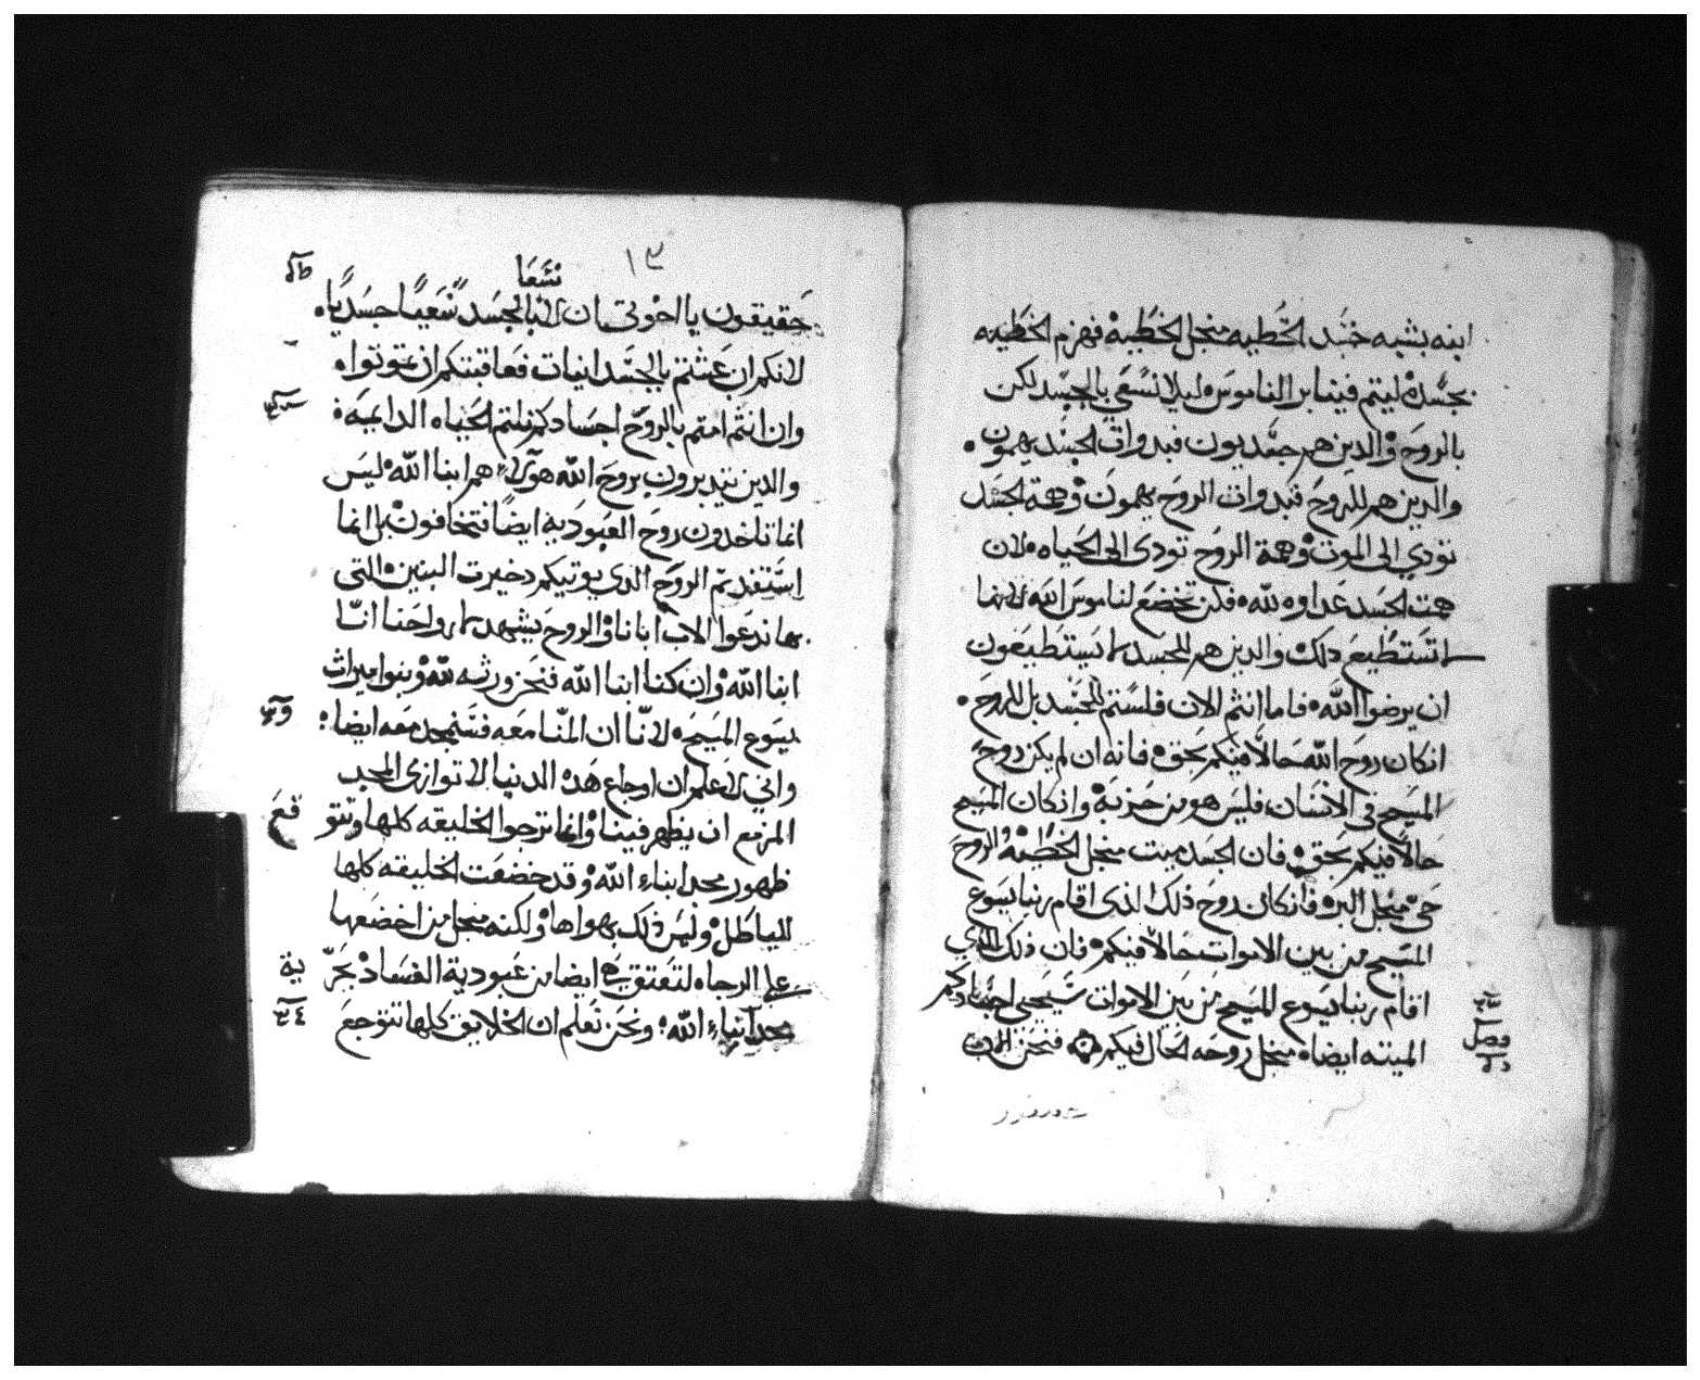 ابنه بشبه جسد الخطيه منجل الخطية فهزم الخطيه
بجسده ليتم فينا بر الناموس ليلا نسعي بالجسد لكن
بالروح والدين هم جسديون فبدوات الجسد يهمون
والدين هم للروح فبدوات الروح يهمون وهمة الجسد
تودي الى الموت وهمة الروح تودى الى الحياه لان
همت الجسد عداوه لله فلن تخضع لناموس الله لانها
لا تستطيع دلك والدين هم للجسد لا يستطيعون
ان يرضوا الله فاما انتم الان فلستم للجسد بل للروح
انكان روح الله حالا فيكم بحق فانه ان لم يكن روح
المسيح فى الانسان فليس هو من حزبه وانكان المسيح
حالا فيكم بحق فان الجسد ميت منجل الخطيه والروح
حى منجل البر فانكان روح ذلك الذى اقام ربنا يسوع
المسيح من بين الاموات حالا فيكم فان ذلك الذي
اقام ربنا يسوع المسيح من بين الاموات سيحيى اجسادكم
الميته ايضا منجل روحه الحال فيكم فنحن الان
فصل
١٣
نسعا
حقيقون يا اخوتى بان لا بالجسد نسعيا جسديا
لانكم ان عشتم بالجسدانيات فعاقبتكم ان تموتوا
وان انتم امتم بالروح اجسادكم نلتم الحياه الدايمية
والدين يتدبرون بروح الله هولاء هم ابنا الله ليس
انما تاخدون روح العبودية ايضا فتخافون بل انما
استفدتم الروح الدى يوتيكم دخيرت البنين التى
بها ندعوا الاب ابانا والروح يشهد لارواحنا انا
ابنا الله وان كنا ابنا الله فنحن ورثه لله وبنوا ميراث
يسوع المسيح لانا ان المنا معه فسنمجد معه ايضا
واني لاعلم ان اوجاع هده الدنيا لا توازى المجد
المزمع ان يظهر فينا وانما ترجوا الخليقه كلها وتتوقع
ظهور مجد ابناء الله وقد خضعت الخليقه كلها
للباطل وليس ذلك بهواها ولكنه منجل من اخضعها
على الرجاه لتعتق هى ايضا من عبودية الفساد بحرية
مجد ابناء الله ونحن نعلم ان الخلايق كلها تتوجع